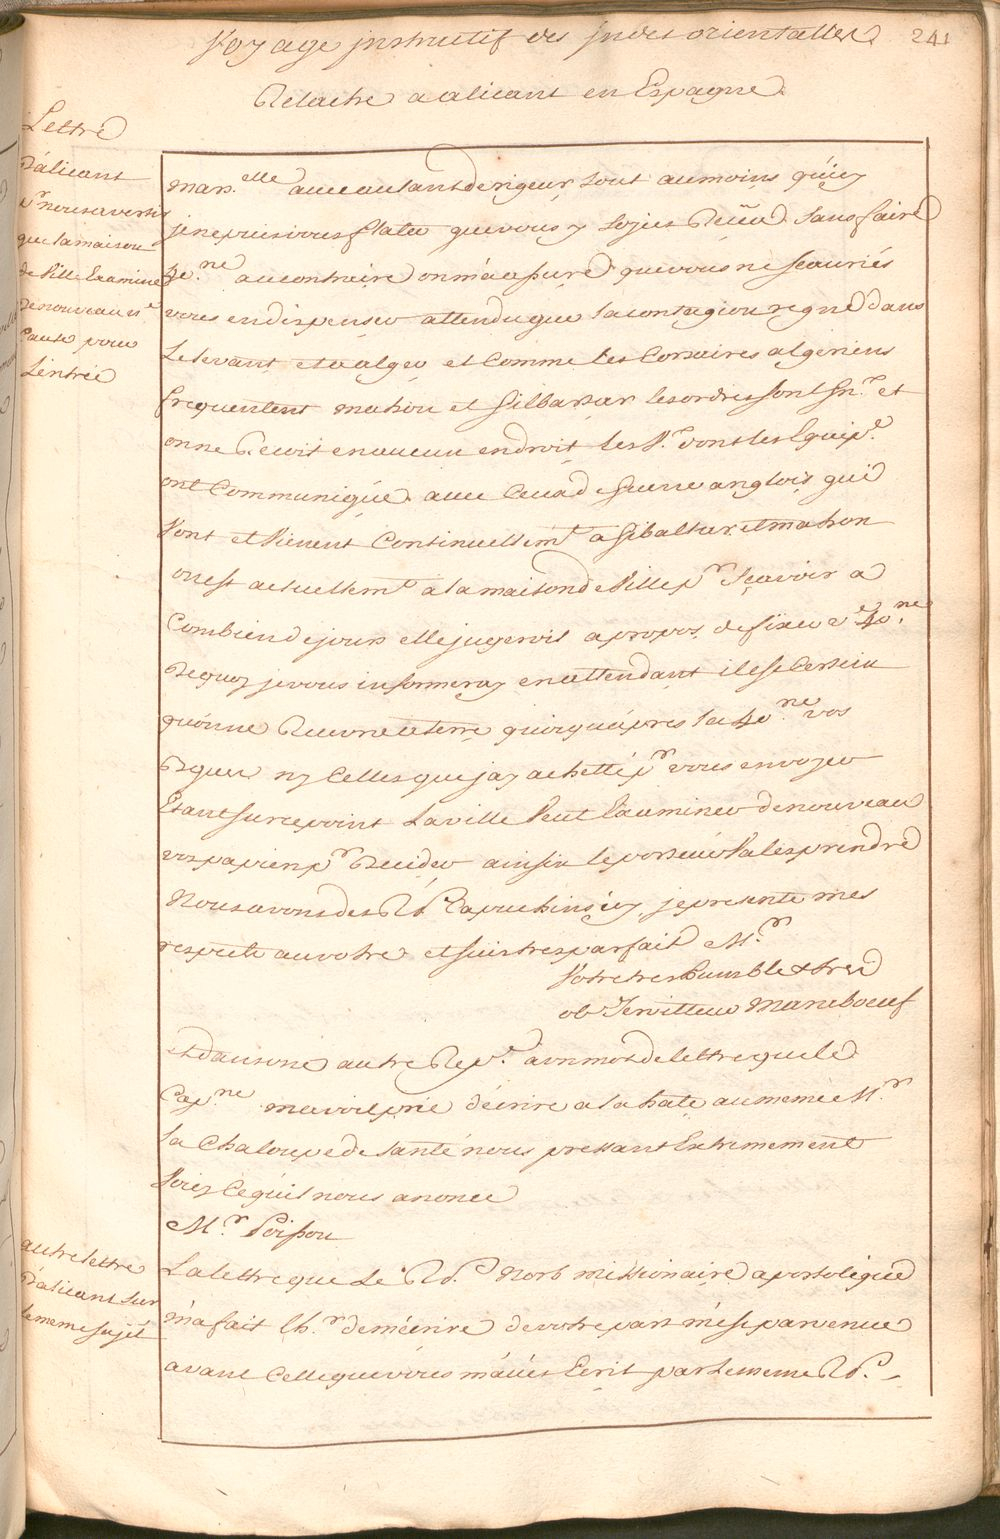 Voyage instructif des jndes orientalles 241
Relache a alicant en Espagne.
Lettre
D'alicant
pr nous avertir
que la maison
de Ville Examine
De nouveau nre
Cause pour
L'entrée
Mars.elle avec autant de rigeur, tout au moins qu'icy
je ne puis vous flater que vous y soyies Reçeu. sans faire
40.ne au contraire on m'a assuré que vous ne scauriés
vous en dispenser attendu que la contagion regne dans
Le levant et a alger et Comme les Corsaires algeriens
frequentent mahon et Gilbaltar les ordres sont Gn.x et
on ne Recoit en aucun endroit les V.x dont les Equip.e
ont Communiqué. avec Ceux de Guerre anglois qui
Vont et Vienent Continuellem.t a Gibaltar et mahon
on est actuellem.t a la maison de Ville p.r Sçavoir a
Combien de jours elle jugerois apropos. de fixer v.e 40.ne
De quoy je vous informeray en attendant il est Certain
qu'on ne Recevra a terre quoiqu'apres la 40.ne vos
ny Celles que jay achetté p.r vous envoyer
Etant sur ce point La ville Veut Examiner de nouveau
vos papiers p.r Decider ainsi le porteur Va les prendre
Nous avons des R.P. Capuchins icy, je presente mes
respects au votre et suis tres parfait M.r
Votre tres humble & tres
ob Serviteur Marcboeuf
et dans une autre Rep.e a un mot de lettre que le
Cap.ne m'avoit prié d'écrire a la hate au meme M.r
La Chaloupe de santé nous pressant Extremement
Voicy Ce qu'il nous anonce
M.r Poisson
autre lettre
D'alicant sur
le meme sujêt
La lettre que Le R.P. Norb missionaire apostolique
m'a fait lh.r de m'écrire de votre part m'est parvenue
avant Celle que vous m'avés Ecrit par le meme R.P.